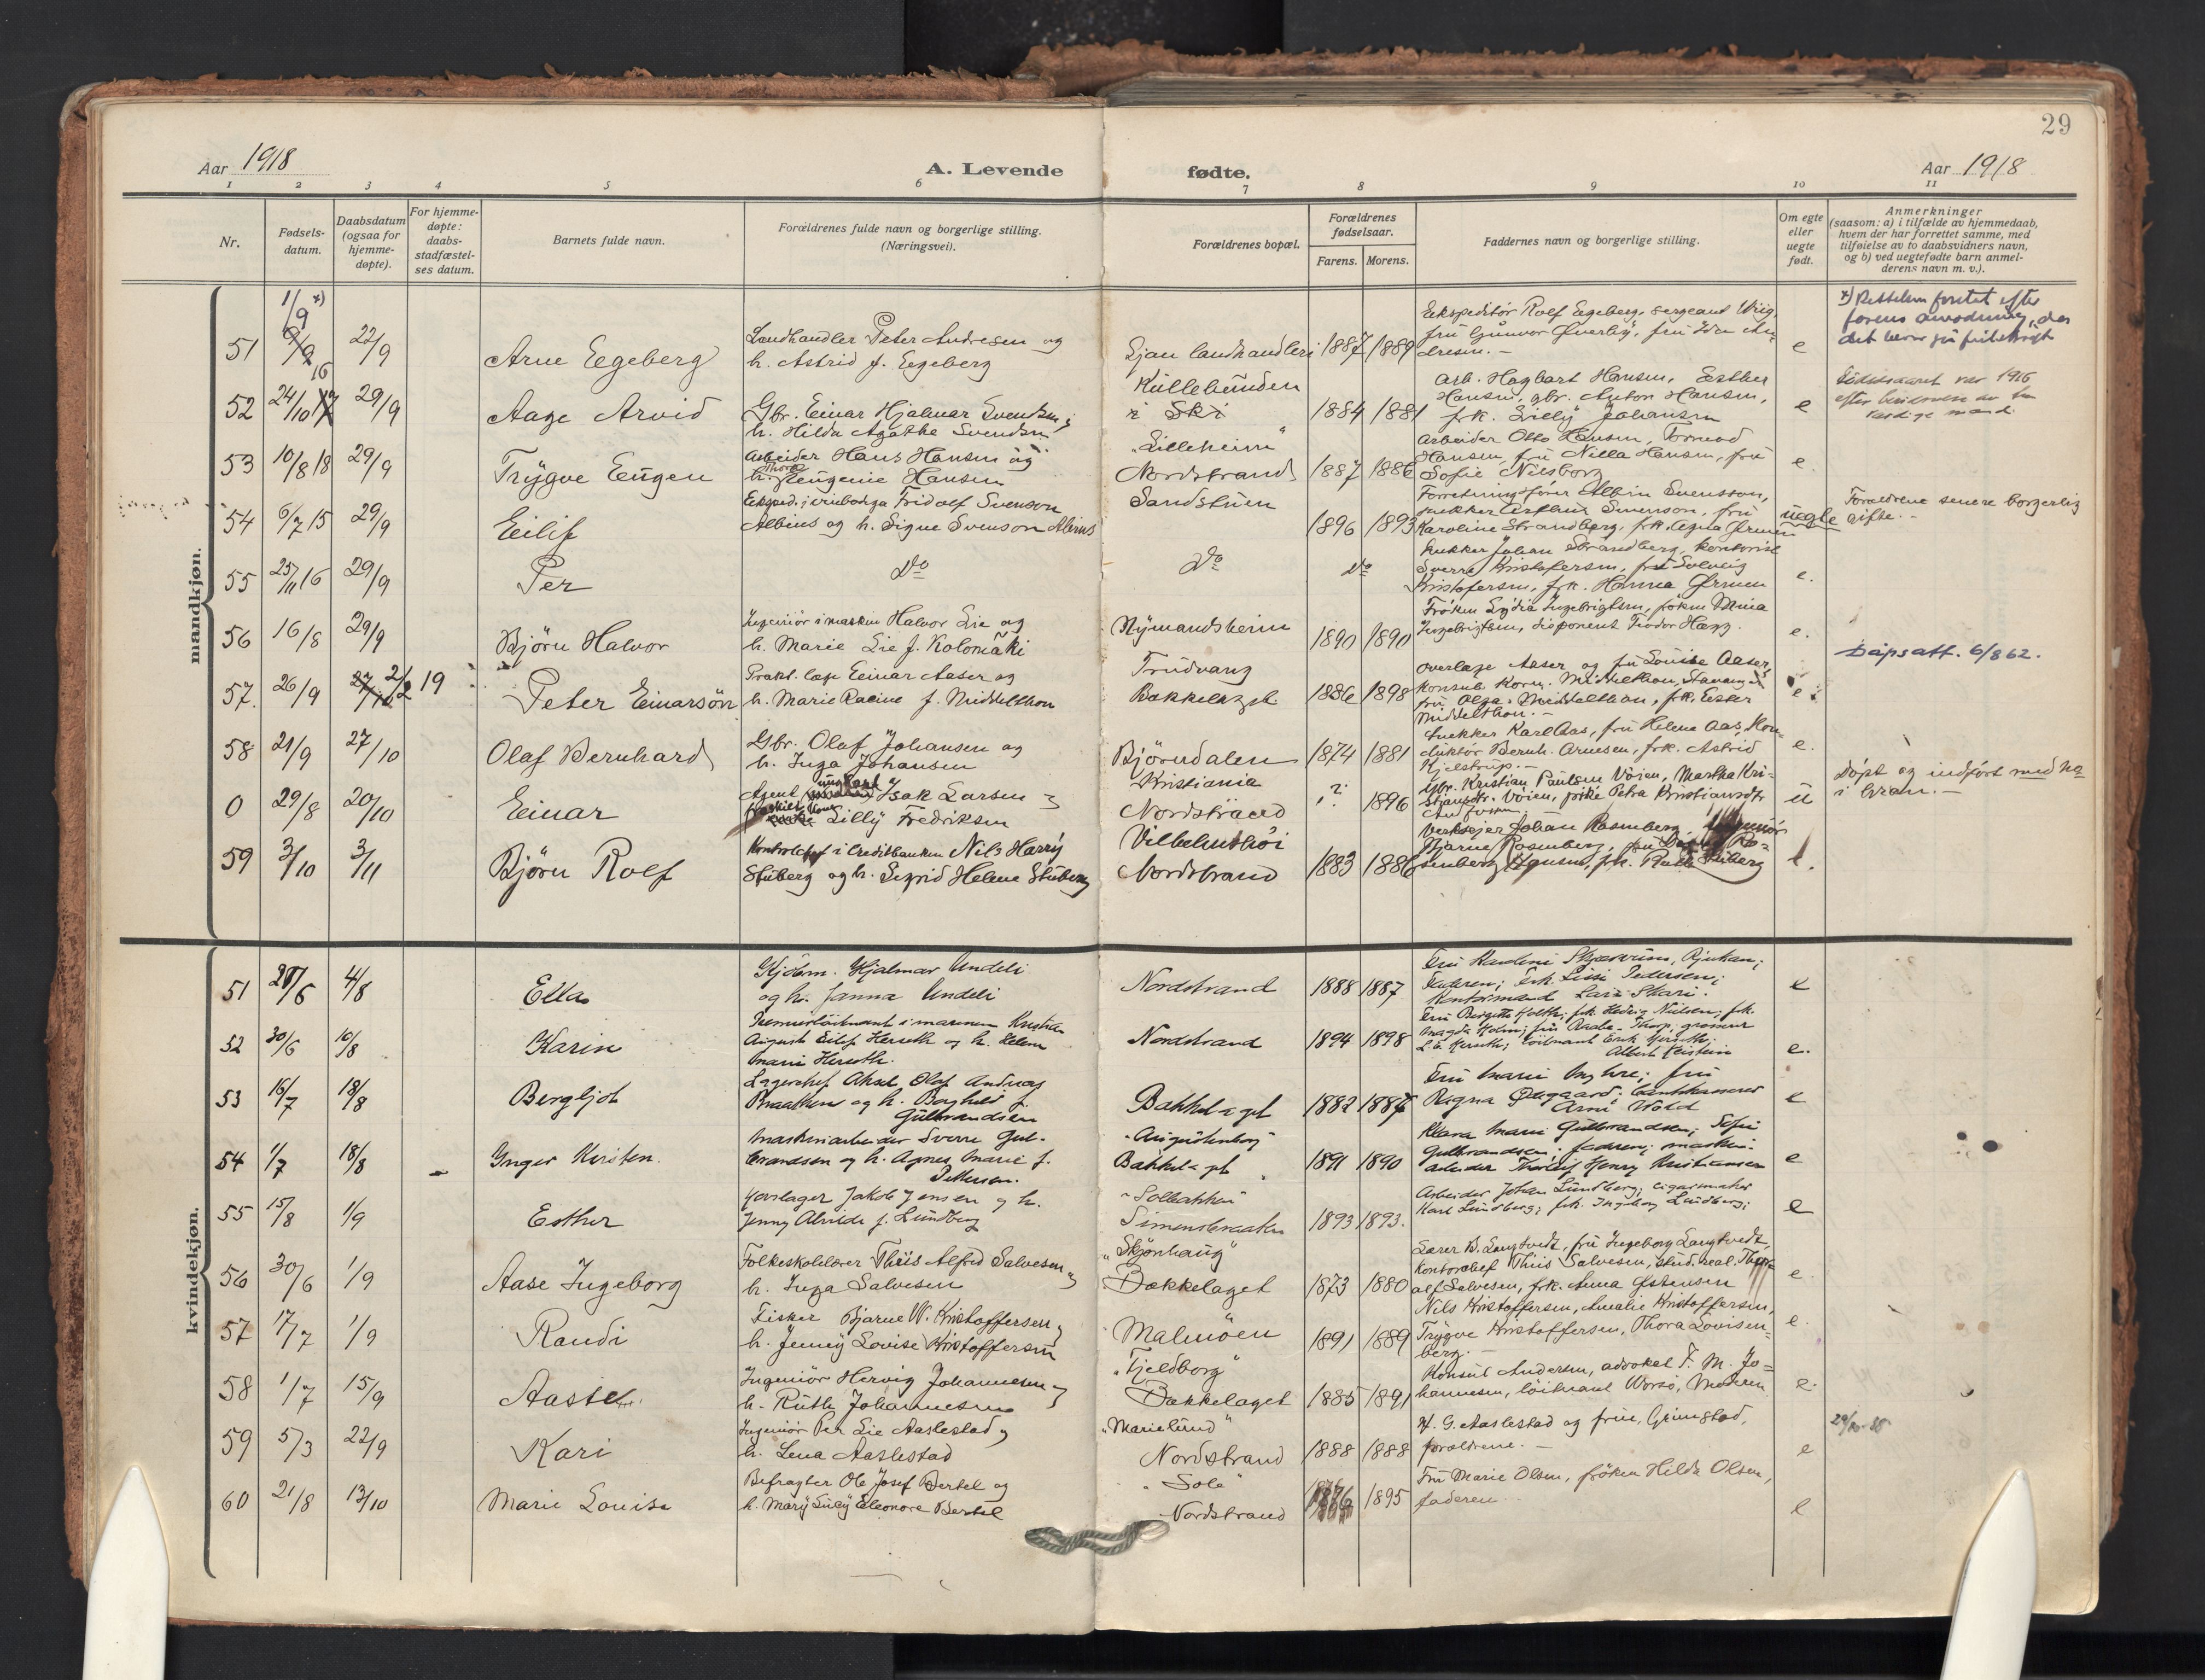 29
Aar 1918
A. Levende fødte.
Aar 1918
1 2 3 4 5 6 7 8 9 10 11
Nr.
Fødsels-
datum.
Daabsdatum
(ogsaa for
hjemme-
døpte).
For hjemme-
døpte:
daabs-
stadfæstel-
ses datum.
Barnets fulde navn.
Forældrenes fulde navn og borgerlige stilling.
(Næringsvei).
Forældrenes bopæl.
Forældrenes
fødselsaar.
Farens. Morens.
Faddernes navn og borgerlige stilling.
Om egte
eller
uegte
født.
Anmerkninger
(saasom: a) i tilfælde av hjemmedaab,
hvem der har forrettet samme, med
tilføielse av to daabsvidners navn,
og b) ved uegtefødte barn anmel-
derens navn m. v.).
mandkjøn.
51 1/9 x) 22/9 Arne Egeberg
Landhandler Peter Andresen og
h. Astrid f. Egeberg
Ljan landhandleri 1887 1889
Ekspeditør Rolf Egeberg, sergeant
fru Gunvor Øverby, fru An-
dresen.-
e
x) Rettelsen foretat efter
farens anvodning, da
det
52 24/10 16 29/9 Aage Arvid
Gbr. Einar Hjalmar Svendsen og
h. Hilda Agathe Svendsen
Kullebunden
i Ski
1884 1881
Arb. Hagbart Hansen, Esther
Hansen, gbr. Anton Hansen,
frk. Lilly Johansen
e
Fødselsaaret var 1916
efter
53 10/8 18 29/9 Trygve Eugen
Arbeider Hans Hansen og
h. Thora Eugenie Hansen
"Lilleheim"
Nordstrand
1887 1886
Arbeider Otto Hansen, Tormod
Hansen, fru Nilla Hansen, fru
Sofie Nilsborg
e
54 6/7 15 29/9 Eilif
Eksped. i vinbodega Fridolf Svenson
Albius og h. Signe Svenson Albius
Sandstuen
1896 1893
Forretningsfører Albin Svensson,
snekker Arthur Svenson, fru
Karoline Strandberg, frk. Agna Ørmen
uegte
Forældrene senere borgerlig
gifte.-
55 25/11 16 29/9 Per
do do do
Snekker Johan Strandberg, kontorist
Sverre Kristofersen, fru Solveig
Kristofersen, frk. Hanna Ørmen
e.
56 16/8 29/9 Bjørn Halvor
Ingeniør i marinen Halvor Lie og
h. Marie Lie f. Kolomaki
Nymandsheim
1890 1890
Frøken Lydia Ingebrigtsen, frøken Mina
Ingebrigtsen, disponent Teodor Hagg.
e.
57. 26/9 27/10 2/2 19 Peter Einarsøn
Prakt. læge Einar Aaser og
h. Marie Racine f. Middelthon
Trudvang
Bækkelaget
1886 1898
Overlæge Aaser og fru Louise Aaser,
konsul Korn. Middelthon, Stavanger
fru Olga Middelthon, frk. Ester
Middelthon.-
e.
Dåpsatt. 6/8 62.
58 21/9 27/10 Olaf Bernhard
Gbr. Olaf Johansen og
h. Inga Johansen
Bjørndalen 1874 1881
Snekker Karl Aas, fru Helene Aas, Kon-
duktør Bernh. Arnesen, frk. Astrid
Kjelstrup.-
e.
0 29/8 20/10 Einar
Agent ungkarl Isak Larsen og
Lilly Fredriksen
Kristiania
Nordstrand
? 1896
Gbr. Kristian Paulsen Vøien, Martha Kri-
stiansdtr. Vøien, frøke Petra Kristiansdtr
u
Døpt og indført med No
i Gran.-
59 3/10 3/11 Bjørn Rolf
Kontorchef i Creditbanken Nils Harry
Stüberg og h. Sigrid Helene Stüberg
Vilhelmshøi
Nordstrand
1883 1886
Verkseier Johan Rosenberg, Ingeniør
Bjarne Rosenberg, fru Ro-
senberg Hansen, frk. Ruth Stüberg
e.
kvindekjøn.
51 28/6 4/8 Ella
Kjøbm. Hjalmar Undeli
og h. Janna Undeli
Nordstrand 1888 1887
Fru Skjærvum, Rjukan;
Faderen; Frk. Lissi Pedersen;
Kontormand Lars Skari.
e
52 30/6 10/8 Karin
Premierløitnant i marinen Kristian
August Eilif Herseth og h. Helene
Marie Herseth.
Nordstrand 1894 1898
Fru Bergitte Holth; frk. Hedvig Nielsen; frk.
Magda Holm; fru Raabe-Thorp; grosserer
L. E. Herseth; løitnant Erik Herseth;
Albert Keistein
e.
53 16/7 18/8 Bergljot
Lagerchef Aksel Olaf Andreas
Braathen og h. Borghild f.
Gulbrandsen
Bækkelaget 1882 1886
Fru Marie Myhre; fru
Ragna Ødegaard;
Arne Wold
e
54 1/7 18/8 - Inger Kirsten.
Maskinarbeider Sverre Gul-
brandsen og h. Agnes Marie f.
Pettersen.
"Augustenborg"
Bækkelaget.
1891 1890
Klara Marie Gulbrandsen; Sofie
Gulbrandsen; faderen; maskin-
arbeider Thorleif Henry Kristiansen
e
55 15/8 1/9 Esther
Gjørtlager Jakob Jensen og h.
Jenny Alvilde f. Lundberg
"Solbakken"
Simensbraaten
1893 1893.
Arbeider Johan Lundberg; cigarmaker
Karl Lundberg; frk. Ingeborg Lundberg;
e
56 30/6 1/9 Aase Ingeborg
Folkeskolelærer Thiis Alfred Salvesen og
h. Inga Salvesen
"Skjønhaug"
Bækkelaget
1873 1880
Lærer B. Langtvedt, fru Ingeborg Langtvedt,
Kontorchef Thiis Salvesen, stud. real. Thor-
alf Salvesen, frk. Anna Østensen
e
57 17/7 1/9 Randi
Fisker Bjarne W. Kristoffersen og
h. Jenny Lovise Kristoffersen
Malmøen
1891 1889
Nils Kristoffersen, Amalie Kristoffersen,
Trygve Kristoffersen, Thora Lovisen-
berg.-
e.
58 1/7 15/9 Aasse
Ingeniør Hervig Johannesen og
h. Ruth Johannesen
"Fjeldborg"
Bækkelaget
1885 1891
Konsul Andersen, advokat F. M. Jo-
hannesen, løitnant Worsø, Moderen
e.
59 5/3 22/9 Kari
Ingeniør Per Lie Aaslestad og
h. Lena Aaslestad
"Marielund"
Nordstrand
1888 1888
H. G. Aaslestad og frue, Grimstad,
forældrene.-
e
60 21/8 13/10 Marie Louise
Befragter Ole Josef Bertel og
h. Mary Lucy Eleonore Bertel
"Sole"
Nordstrand
1876 1895
Fru Marie Olsen, frøken Hilda Olsen,
faderen.
e